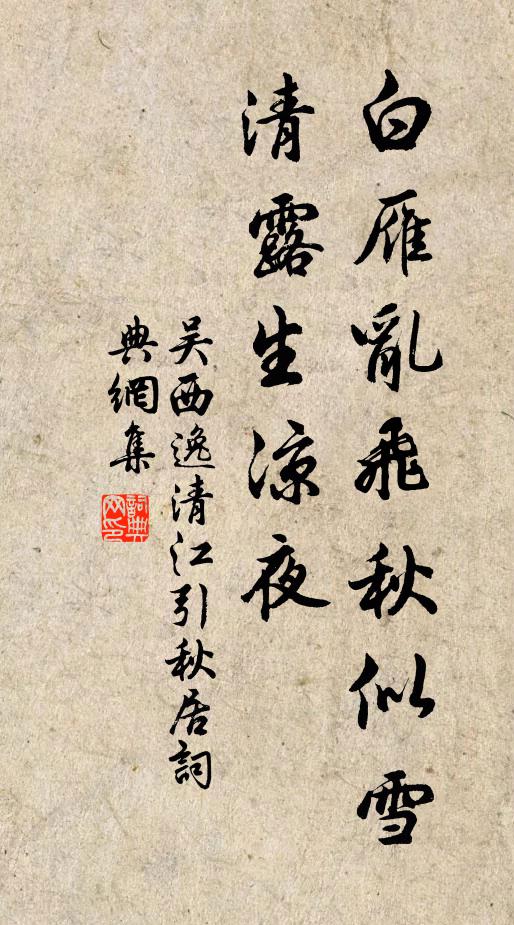 白雁亂飛秋似雪
清露生涼夜
吳西逸清江引秋居詞
典網集
詞典網印